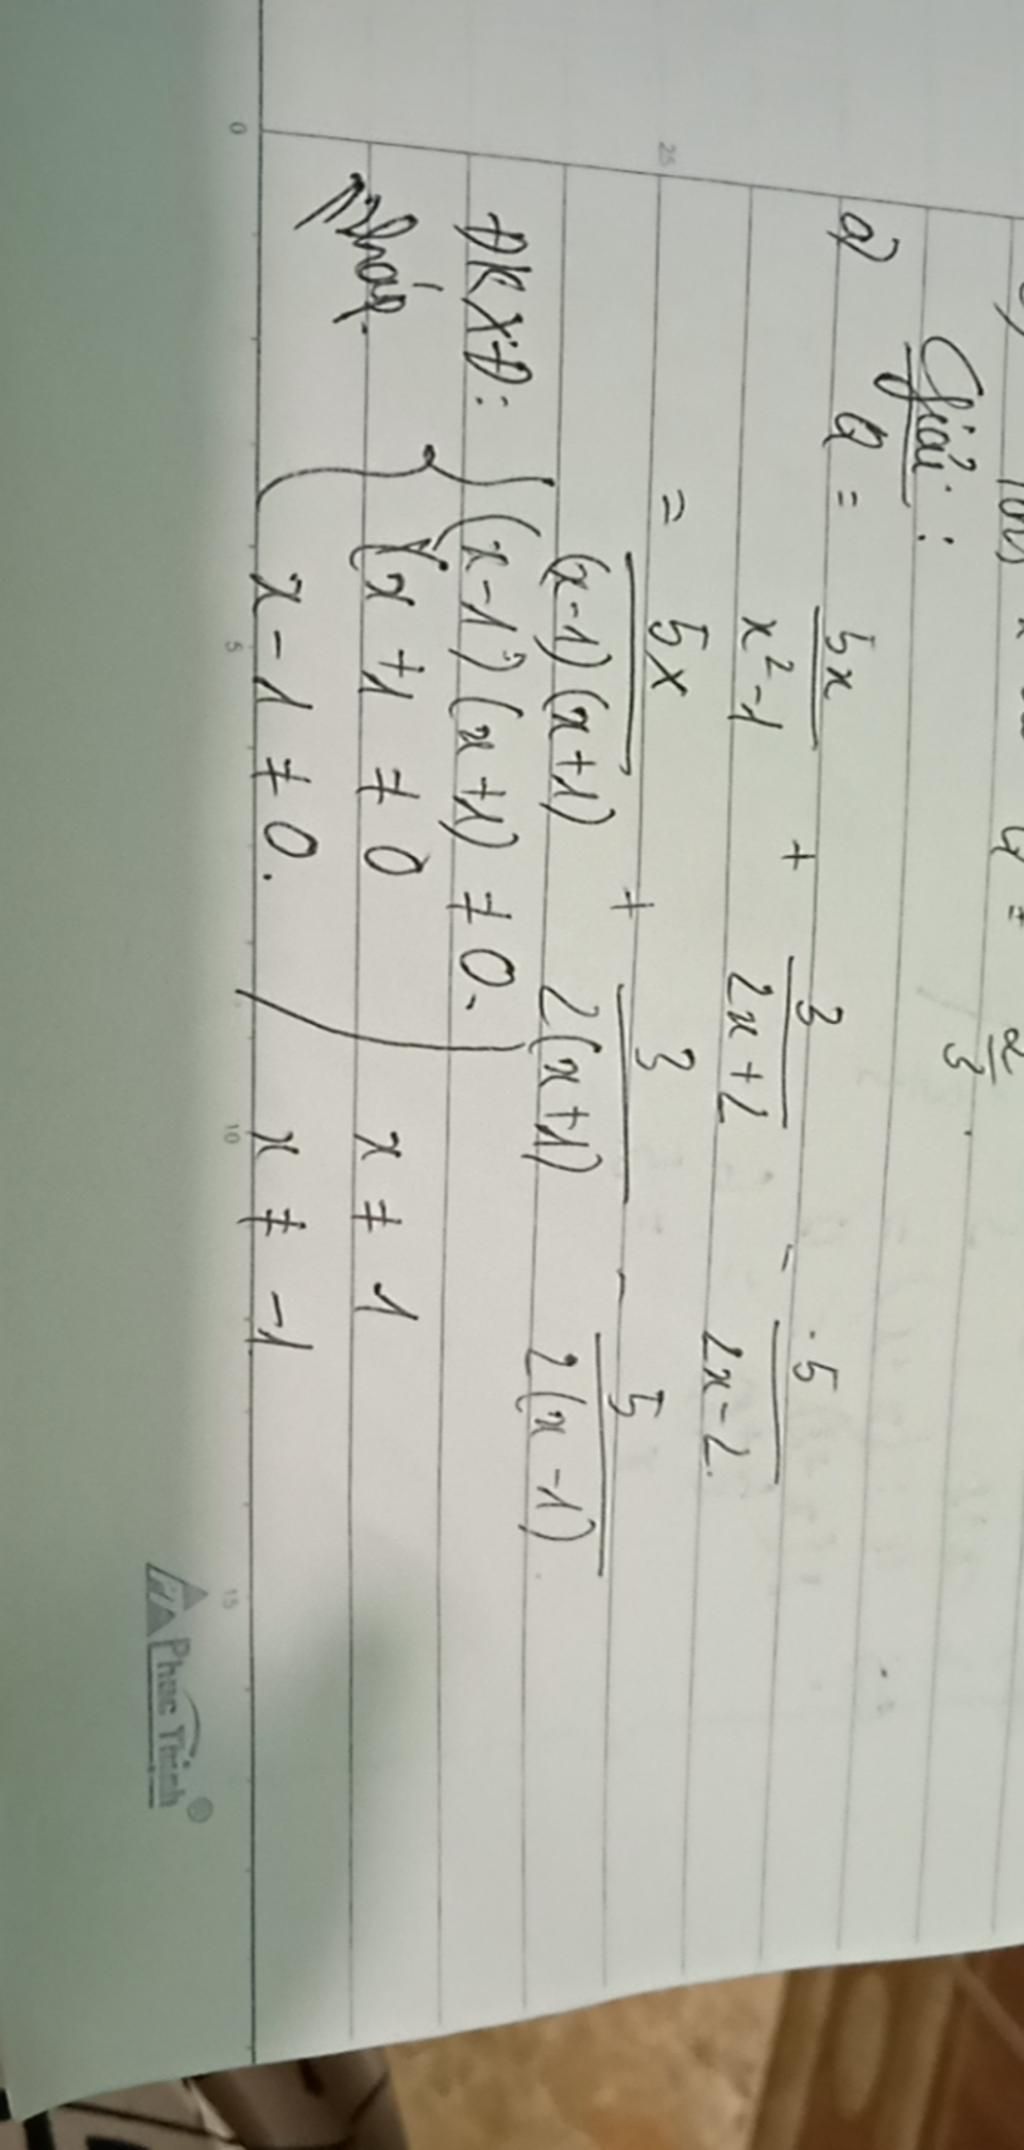 Giải:
a) Q = 5x/x²-1 + 3/2x+2 - 5/2x-2
= 5x/(x-1)(x+1) + 3/2(x+1) - 5/2(x-1)
ĐKXĐ: (x-1)(x+1) ≠ 0.
(x+1 ≠ 0 x ≠ 1
x-1 ≠ 0. x ≠ -1
25
0 5 10 15
Phuc Thinh®